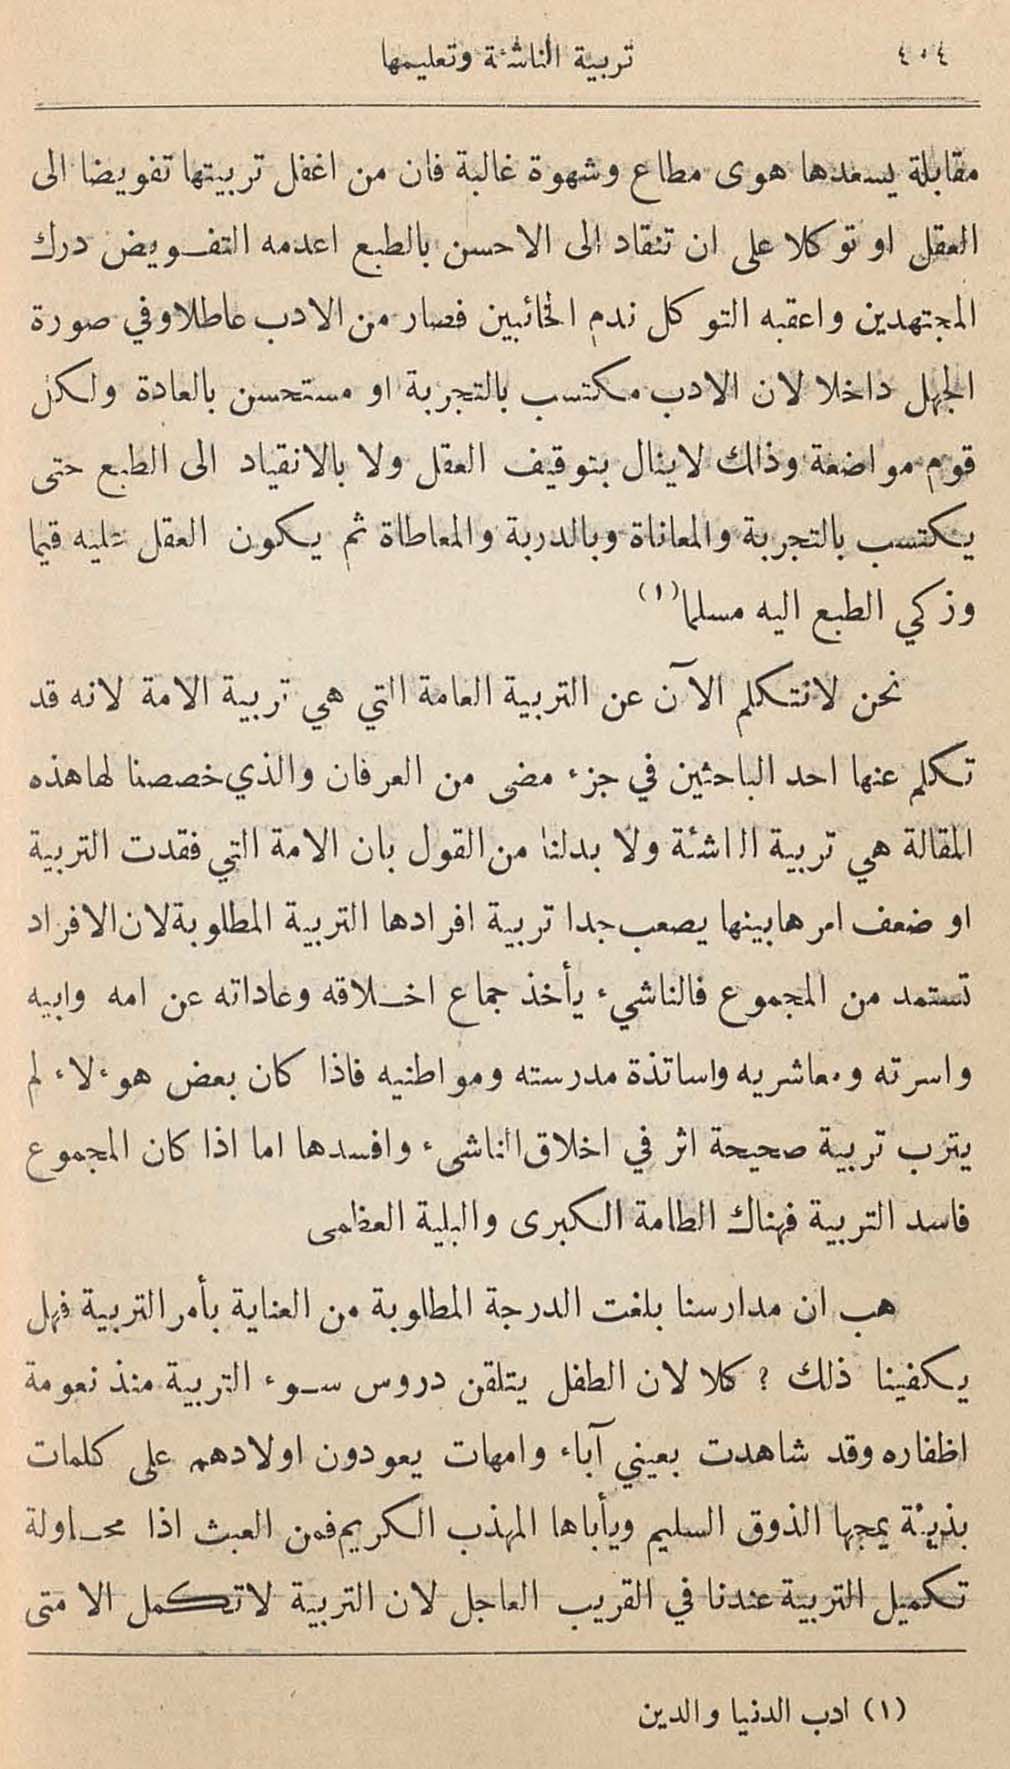 ٤٠٤
تربية الناشئة وتعليمها
مقابلة يسعدها هوى مطاع وشهوة غالبة فان من اغفل تربيتها تفويضا الى
العقل او توكلا على ان تنقاد الى الاحسن بالطبع اعدمه التفويض درك
المجتهدين واعقبه التوكل ندم الخائبين فصار من الادب عاطلا وفي صورة
الجهل داخلا لان الادب مكتسب بالتجربة او مستحسن بالعادة ولكل
قوم مواضعة وذلك لاينال بتوقيف العقل ولا بالانقياد الى الطبع حتى
يكتسب بالتجربة والمعاناة وبالدربة والمعاطاة ثم يكون العقل عليه قيما
وزكي الطبع اليه مسلما (١)
نحن لانتكلم الآن عن التربية العامة التي هي تربية الامة لانه قد
تكلم عنها احد الباحثين في جزء مضى من العرفان والذي خصصنا لها هذه
المقالة هي تربية الناشئة ولا بدلنا من القول بان الامة التي فقدت التربية
او ضعف امرها بينها يصعب جدا تربية افرادها التربية المطلوبة لان الافراد
تستمد من المجموع فالناشيء يأخذ جماع اخلاقه وعاداته عن امه وابيه
واسرته ومعاشريه واساتذة مدرسته ومواطنيه فاذا كان بعض هوءلاء لم
يترب تربية صحيحة اثر في اخلاق الناشىء وافسدها اما اذا كان المجموع
فاسد التربية فهناك الطامة الكبرى والبلية العظمى
هب ان مدارسنا بلغت الدرجة المطلوبة من العناية بأمر التربية فهل
يكفينا ذلك ؟ كلا لان الطفل يتلقن دروس سوء التربية منذ نعومة
اظفاره وقد شاهدت بعيني آباء وامهات يعودون اولادهم على كلمات
بذيئة يمجها الذوق السليم ويأباها المهذب الكريم فمن العبث اذا محاولة
تكميل التربية عندنا في القريب العاجل لان التربية لاتكمل الا متى
(١) ادب الدنيا والدين